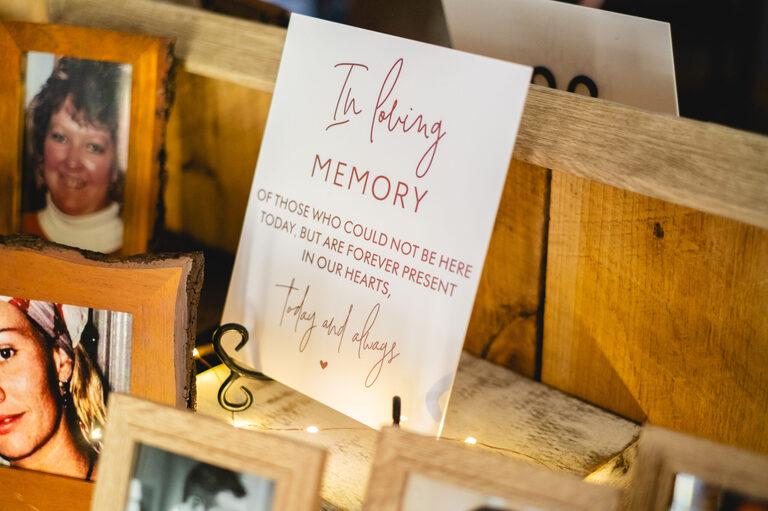 In loving
MEMORY
OF THOSE WHO COULD NOT BE HERE
TODAY, BUT ARE FOREVER PRESENT
IN OUR HEARTS,
today and always